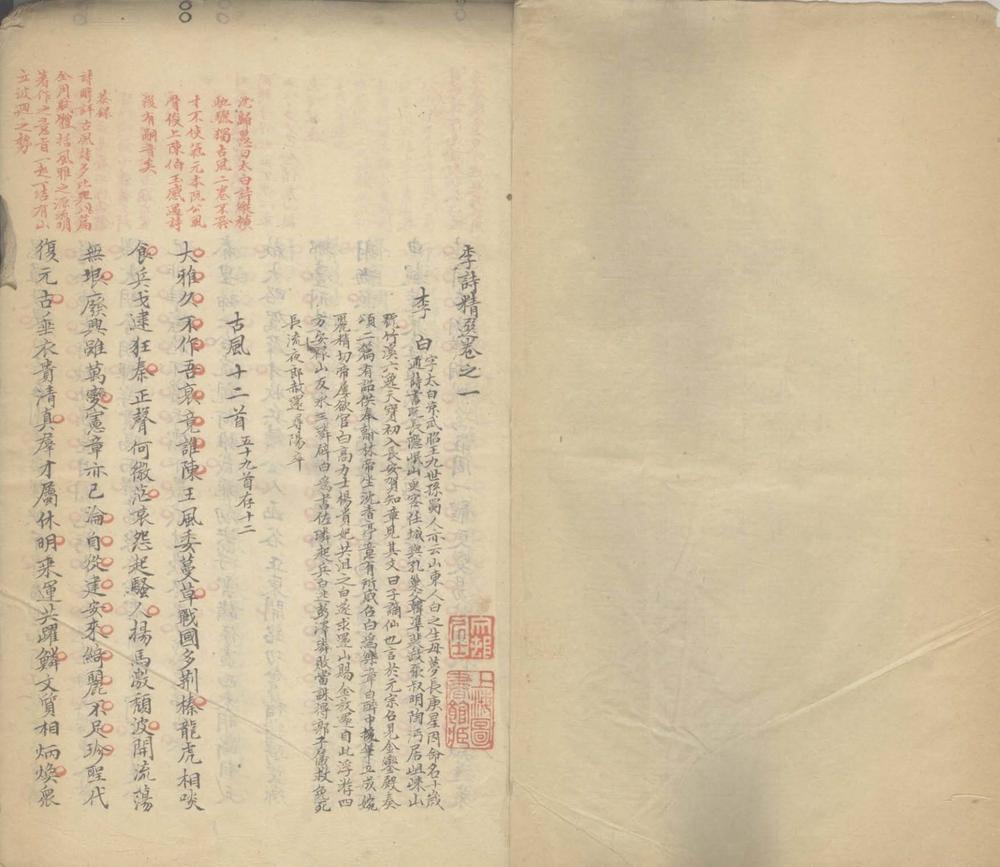 李詩精選卷之一
李白 字太白京武昭王九世孫蜀人亦云山東人白之生母夢長庚星因命名十歲
通詩書既長隱岷山更客任城與孔巢父韓準裴政張叔明陶沔居徂徠山
號竹溪六逸天寶初入長安賀知章見其文曰子謫仙也言於元宗召見金鑾殿奏
頌二篇有詔供奉翰林帝坐沈香亭意有所感召白為樂章白醉中援筆立成婉
麗精切帝屢欲官白高力士楊貴妃共沮之白遂求還山賜金放還自此浮游四
方安祿山反永王璘辟白為書佐璘起兵白逃彭澤璘敗當誅得郭子儀救免死
長流夜郎赦還尋陽卒
古風十二首 五十九首存十二
大雅久不作吾衰竟誰陳王風委蔓草戰國多荊榛龍虎相啖
食兵戈逮狂秦正聲何微茫哀怨起騷人揚馬激頹波開流蕩
無垠廢興雖萬變憲章亦已淪自從建安來綺麗不足珍聖代
復元古垂衣貴清真羣才屬休明乘運共躍鱗文質相炳煥眾
沈歸愚曰太白詩縱橫
馳驟獨古風二卷不矜
才不使氣元本阮公風
後有嗣音矣
詩醇評古風詩多比興此篇
全用賦體括風雅之源流明
著作之意旨一起一結有山
立波迴之勢
上海圖
書館藏